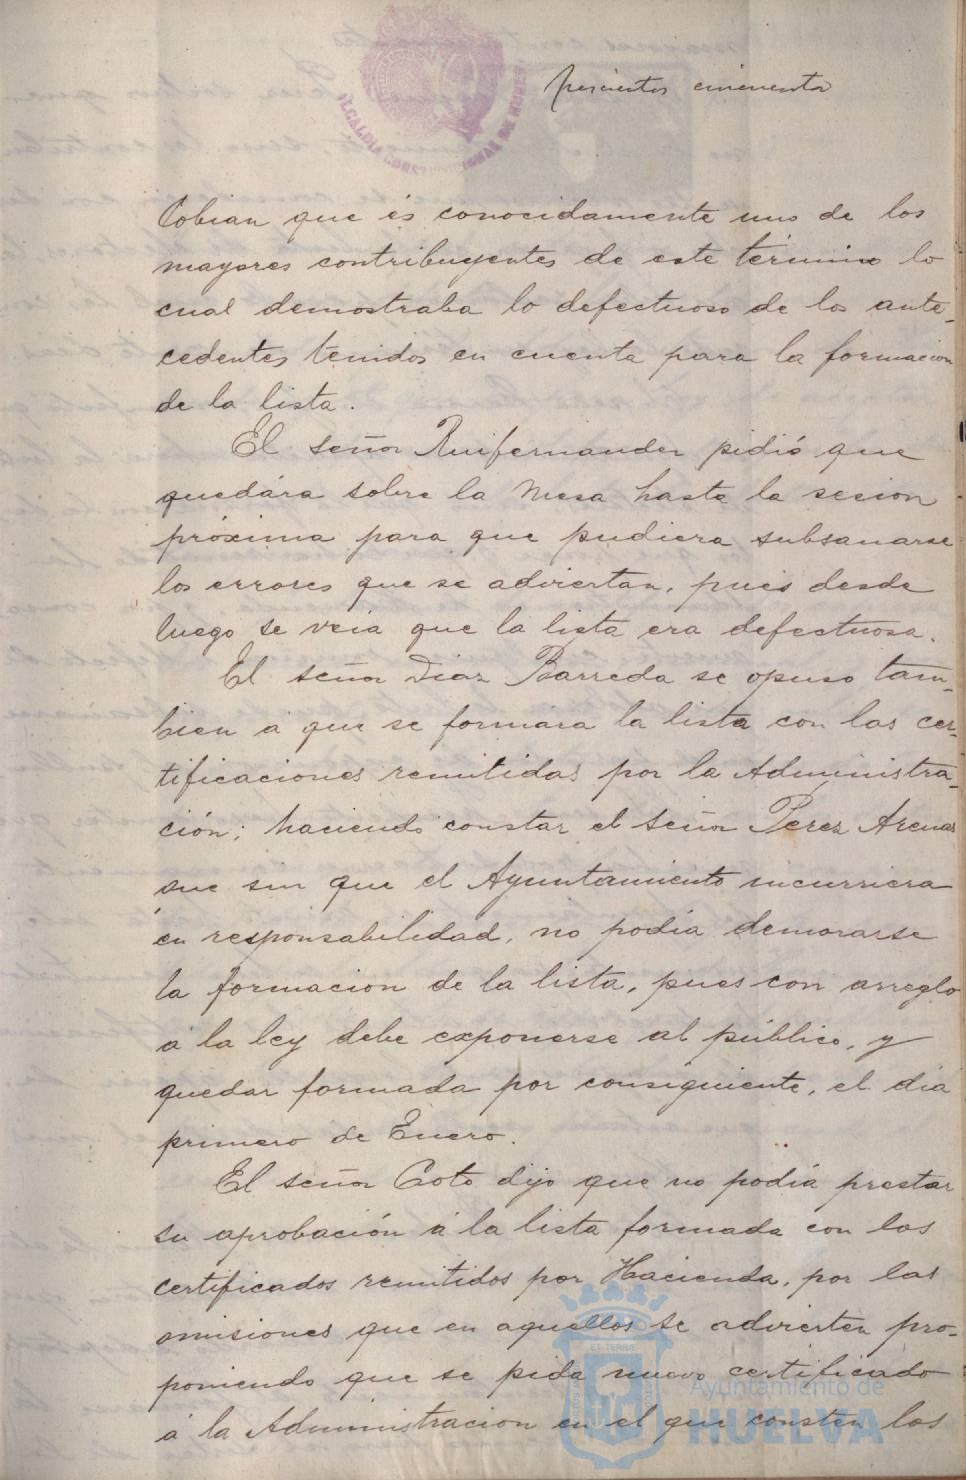 trescientos cincuenta
ALCALDIA CONSTITUCIONAL DE HUELVA
Cobian que és conocidamente uno de los
mayores contribuyentes de este término lo
cual demostraba lo defectuoso de los ante-
cedentes tenidos en cuenta para la formacion
de la lista.
El señor Ruifernandez pidió que
quedára sobre la Mesa hasta la sesion
próxima para que pudiera subsanarse
los errores que se adviertan, pues desde
luego se veia que la lista era defectuosa.
El señor Diaz Barreda se opuso tam-
bien á que se formára la lista con las cer-
tificaciones remitidas por la Administra-
ción; haciendo constar el señor Perez Arenas
que sin que el Ayuntamiento incurriera
en responsabilidad, no podia demorarse
la formacion de la lista, pues con arreglo
á la ley debe exponerse al público, y
quedar formada por consiguiente, el dia
primero de Enero.
El señor Coto dijo que no podia prestar
su aprobación á la lista formada con los
certificados remitidos por Hacienda, por las
omisiones que en aquellos se advierten pro-
poniendo que se pida nuevo certificado
á la Administracion en el que consten los
Ayuntamiento de
HUELVA